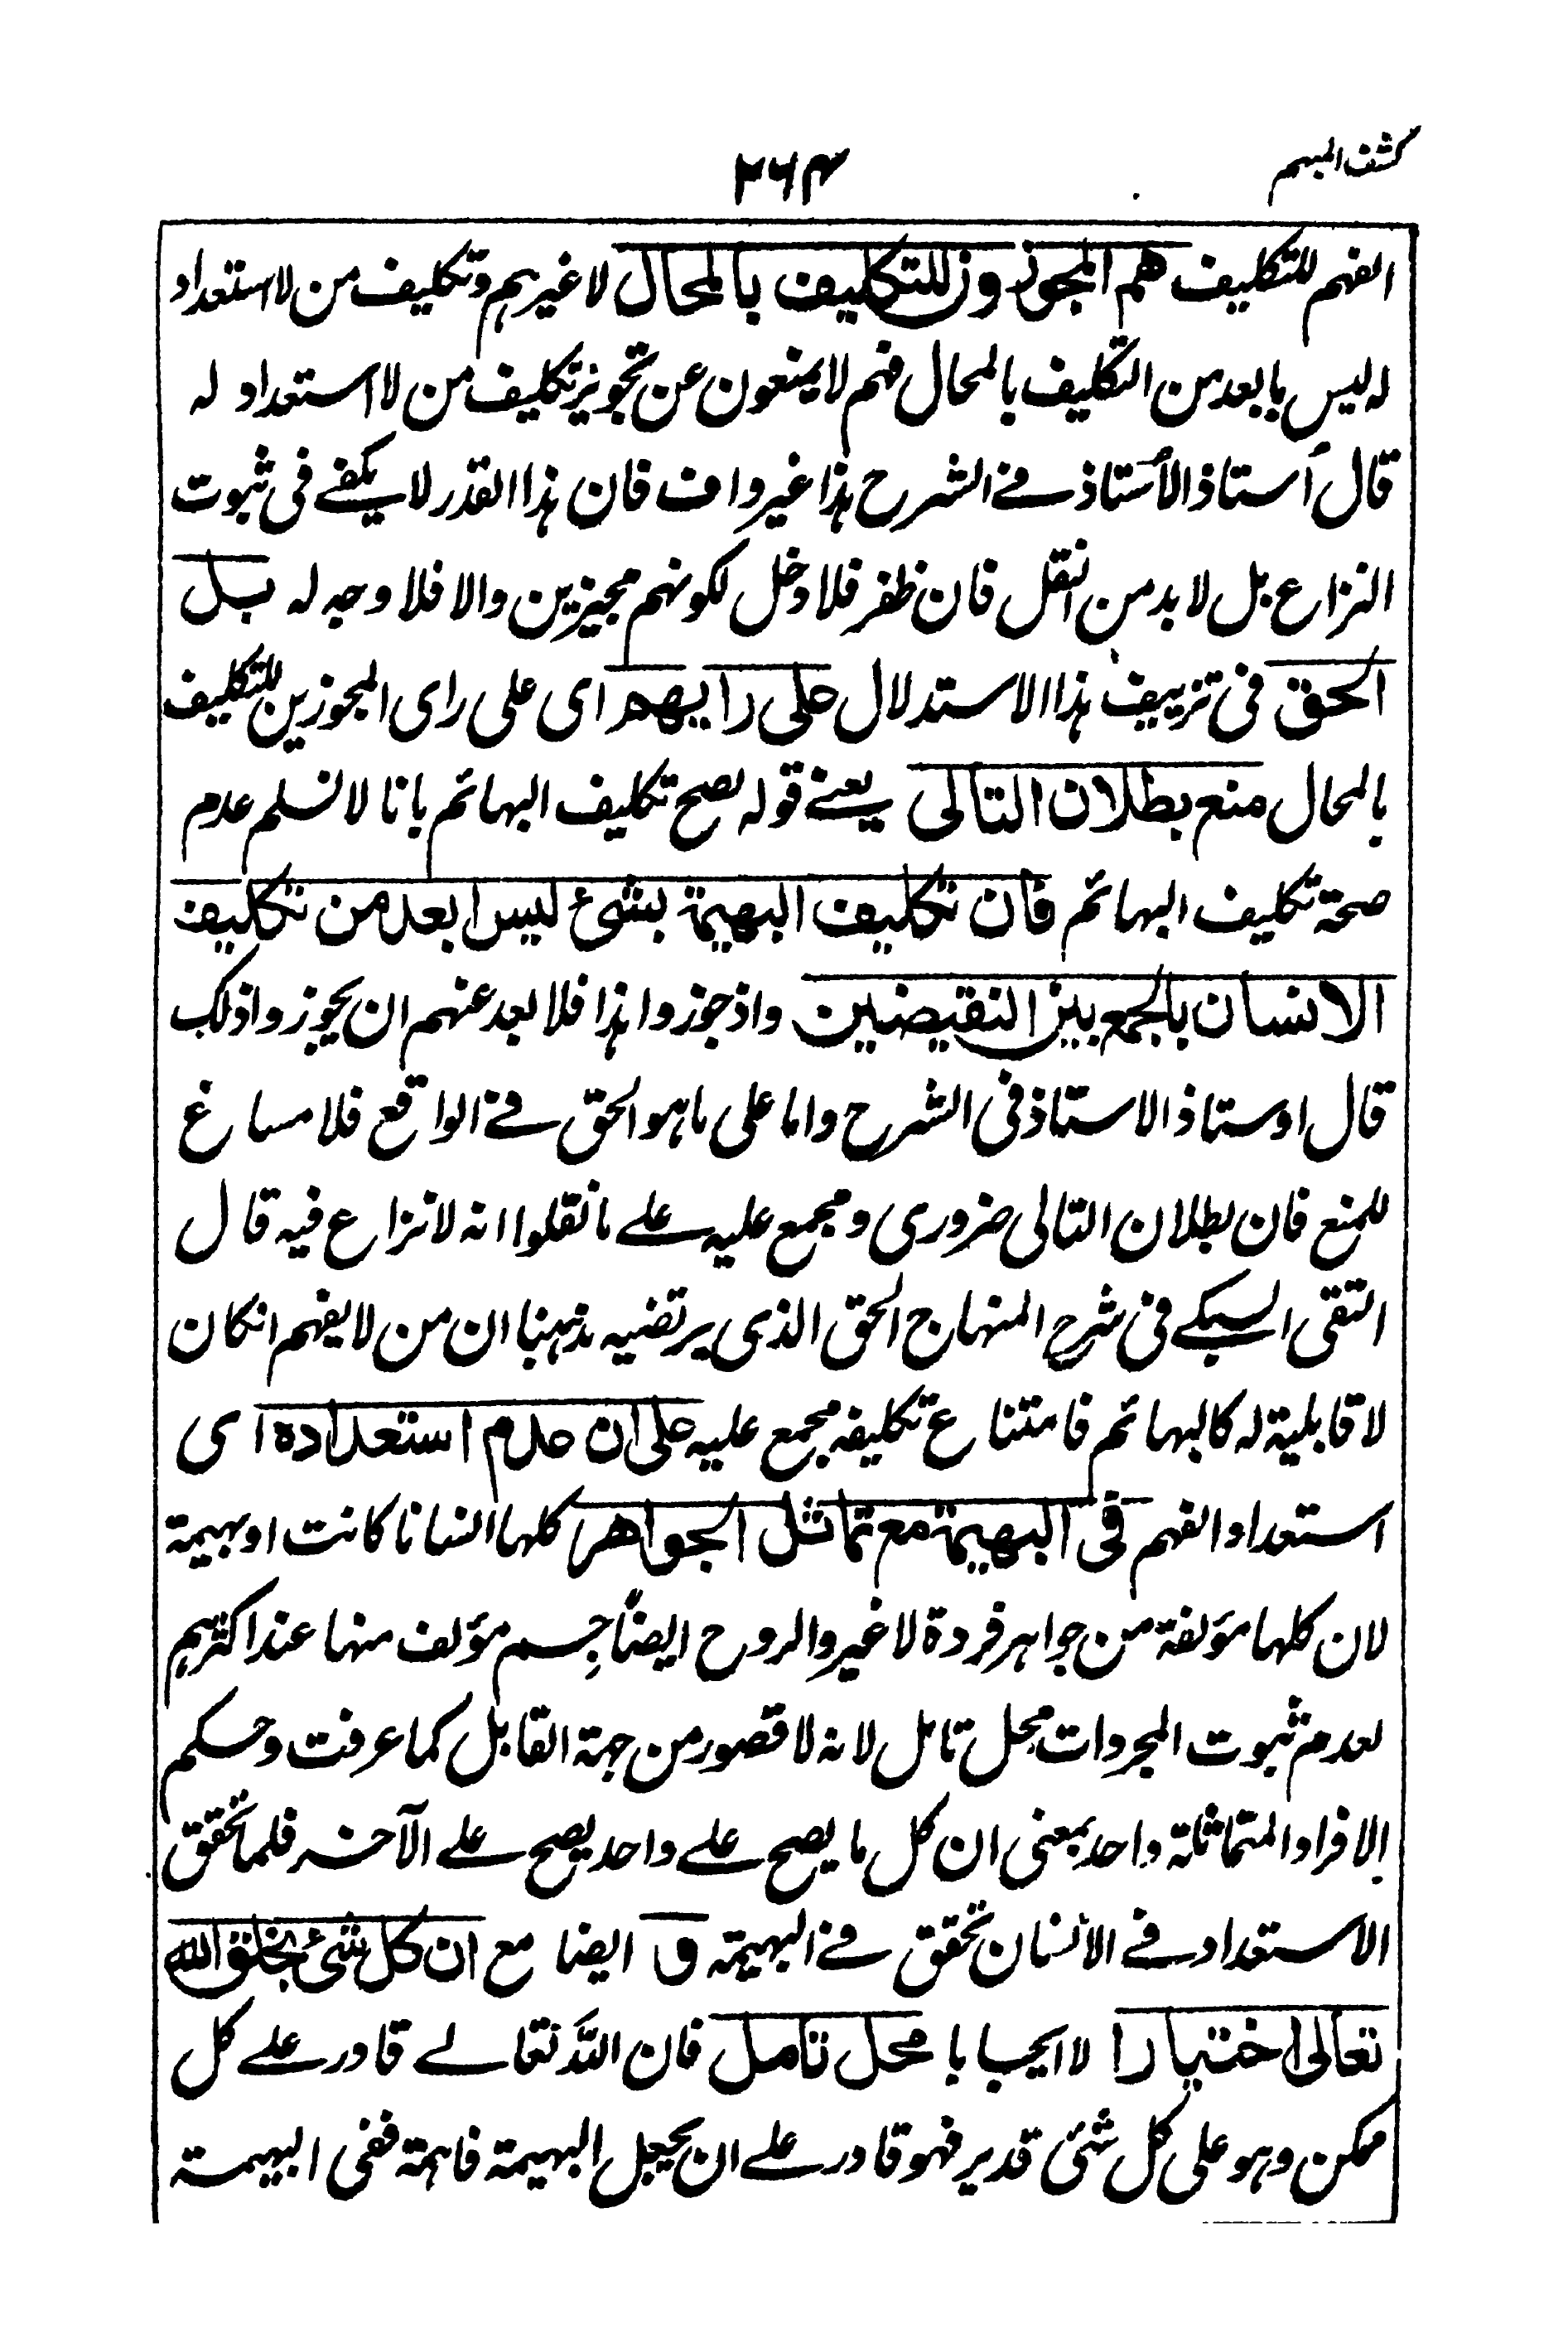 كشف المبهم
٢٦٤
الفهم للتكليف هم المجوزون للتكليف بالمحال لا غيرهم وتكليف من لا استعداد
له ليس بابعد من التكليف بالمحال فهم لا يمنعون عن تجويز تكليف من لا استعداد له
قال أستاذ الأستاذ في الشرح هذا غير واف فان هذا القدر لا يكفى فى ثبوت
النزاع بل لا بد من النقل فان ظفر فلا دخل لكونهم مجيزين والا فلا وجه له بل
الحق فى تزييف هذا الاستدلال على رايهم اى على راى المجوزين للتكليف
بالمحال منع بطلان التالى يعنى قوله يصح تكليف البهائم بانا لا نسلم عدم
صحة تكليف البهائم فان تكليف البهيمة بشئ ليس ابعد من تكليف
الانسان بالجمع بين النقيضين واذ جوزوا هذا فلا بعد عنهم ان يجوزوا ذلك
قال اوستاذ الاستاذ فى الشرح واما على ما هو الحق فى الواقع فلا مساغ
للمنع فان بطلان التالى ضرورى ومجمع عليه على ما نقلوا انه لا نزاع فيه قال
التقى السبكى فى شرح المنهاج الحق الذى يرتضيه مذهبنا ان من لا يفهم انكان
لا قابلية له كالبهائم فامتناع تكليفه مجمع عليه على ان عدم استعداده اى
استعداد الفهم فى البهيمة مع تماثل الجواهر كلها انسانا كانت او بهيمة
لان كلها مؤلفة من جواهر فردة لا غير والروح ايضاً جِسم مؤلف منها عند اكثرهم
لعدم ثبوت المجردات محل تامل لانه لا قصور من جهة القابل كما عرفت وحكم
الافراد المتماثلة واحد بمعنى ان كل ما يصح على واحد يصح على الآخر فلما تحقق
الاستعداد فى الانسان تحقق فى البهيمة و ايضا مع ان كل شئ بخلق الله
تعالى اختيارا لا ايجابا محل تامل فان اللّٰه تعالى قادر على كل
ممكن وهو على كل شئى قدير فهو قادر على ان يجعل البهيمة فاهمة ففى البهيمة